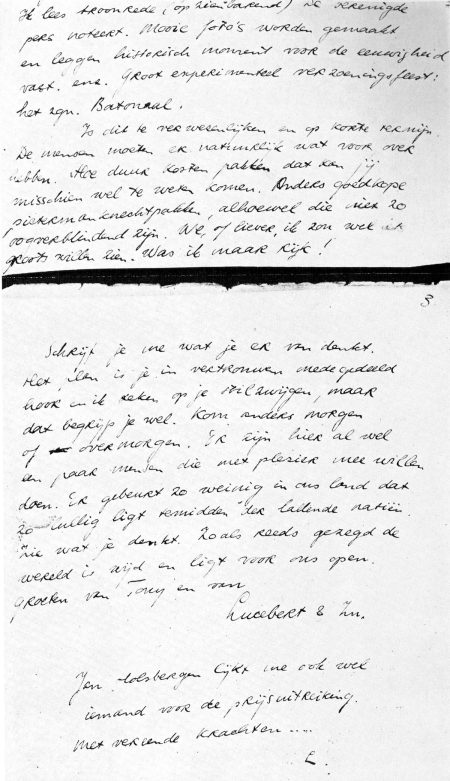 Ik lees troonrede, (opzienbarend) De verenigde
pers noteert. Mooie foto's worden gemaakt
en leggen historisch moment voor de eeuwigheid
vast. enz. Groot experimenteel verzoeningsfeest:
het zgn. Batonaal.
Is dit te verwezenlijken en op korte termijn.
De mensen moeten er natuurlijk wat voor over
hebben. Hoe duur kosten pakken dat kan jij
misschien wel te weten komen. Anders goedkope
knechtpakken, alhoewel die niet zo
oogverblindend zijn. We, of liever, ik zou wel
groots willen zien. Was ik maar rijk!
3
Schrijf je me wat je er van denkt.
Het plan is je in vertrouwen medegedeeld
hoor en ik reken op je stilzwijgen, maar
dat begrijp je wel. Kom anders morgen
of overmorgen. Er zijn hier al wel
een paar mensen die met plezier mee willen
doen. Er gebeurt zo weinig in ons land dat
zo lullig ligt temidden der ladende natiën.
Zie wat je denkt. Zoals reeds gezegd de
wereld is wijd en ligt voor ons open.
Groeten van Tony en van
Lucebert & Zn.
Jan lijkt me ook wel
iemand voor de prijsuitreiking.
Met vereende krachten ....
L.